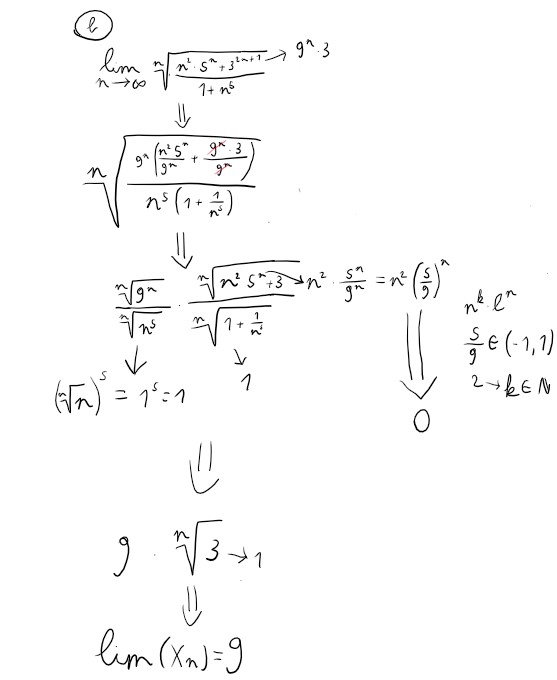 b
lim n→∞ ⁿ√((n²·5ⁿ+3²ⁿ⁺¹)/(1+n⁵)) → 9ⁿ·3
⇓
ⁿ√((9ⁿ(n²5ⁿ/9ⁿ + 9ⁿ·3/9ⁿ))/(n⁵(1+1/n⁵)))
⇓
ⁿ√9ⁿ/ⁿ√n⁵ · ⁿ√(n²5ⁿ+3)/ⁿ√(1+1/n⁵) → n²·5ⁿ/9ⁿ = n²(5/9)ⁿ
n^k·lⁿ
5/9 ∈ (-1,1)
2→k∈ℕ
(ⁿ√n)⁵ = 1⁵=1
1
0
⇓
9 · ⁿ√3 → 1
⇓
lim(Xn)=9